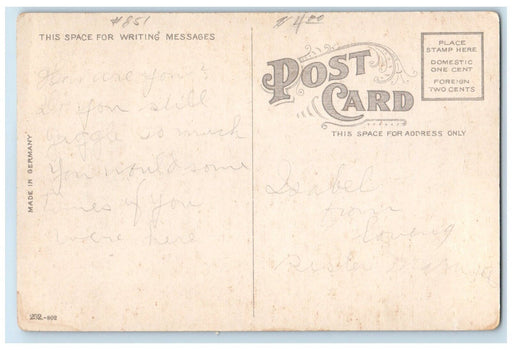 #851
$4.00
THIS SPACE FOR WRITING MESSAGES
How are you
Do you still
so much
You would some
times if you
were here
MADE IN GERMANY
202-602
POST CARD
THIS SPACE FOR ADDRESS ONLY
PLACE
STAMP HERE
DOMESTIC
ONE CENT
FOREIGN
TWO CENTS
Isabel
from
loving
Sister